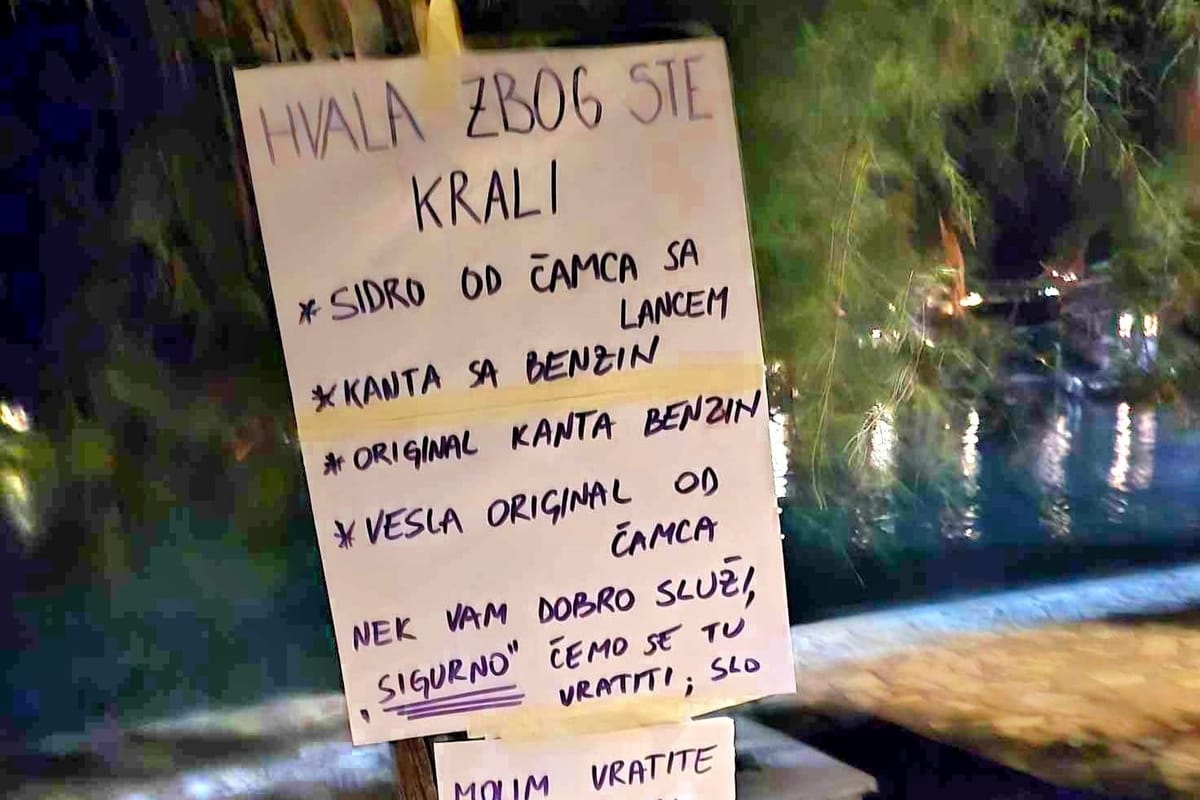 HVALA ZBOG STE
KRALI
* SIDRO OD ČAMCA SA
LANCEM
* KANTA SA BENZIN
* ORIGINAL KANTA BENZIN
* VESLA ORIGINAL OD
ČAMCA
NEK VAM DOBRO SLUŽI,
"SIGURNO" ČEMO SE TU
VRATITI; SLO
MOLIM VRATITE